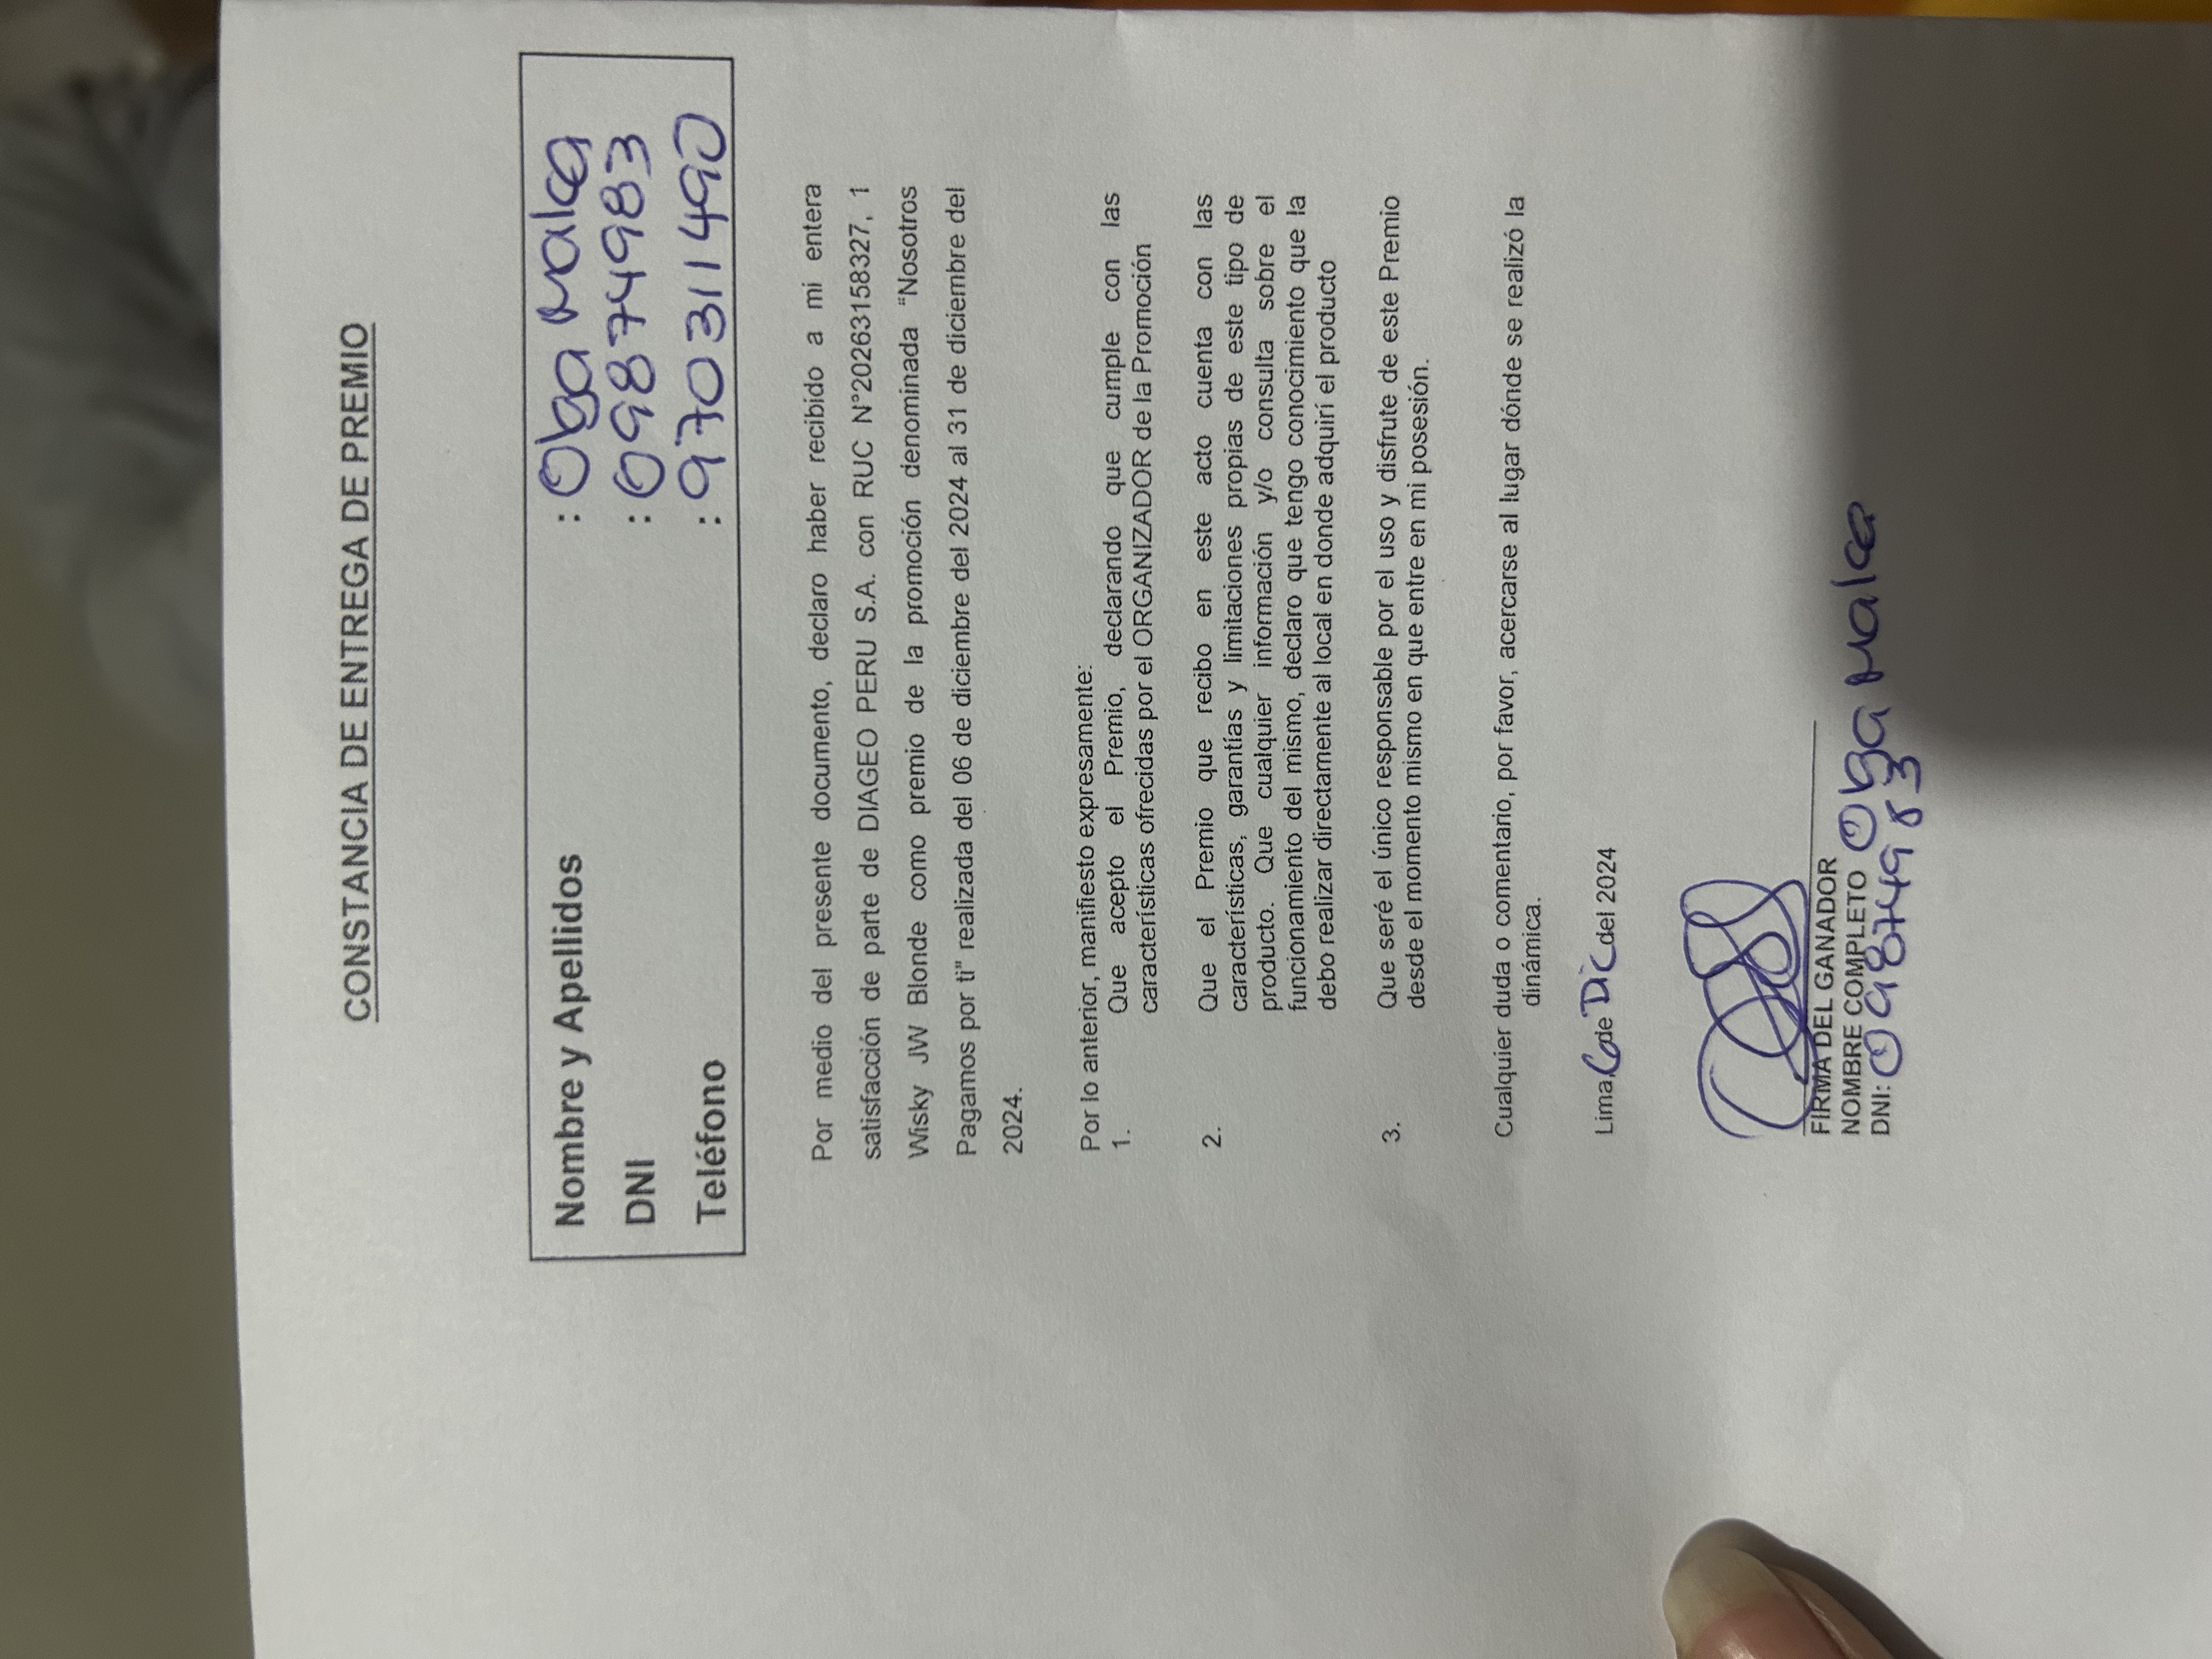 CONSTANCIA DE ENTREGA DE PREMIO
Nombre y Apellidos : Olga Malca
DNI : 09874983
Teléfono : 970311490
Por medio del presente documento, declaro haber recibido a mi entera
satisfacción de parte de DIAGEO PERU S.A. con RUC N°20263158327, 1
Wisky JW Blonde como premio de la promoción denominada “Nosotros
Pagamos por ti” realizada del 06 de diciembre del 2024 al 31 de diciembre del
2024.
Por lo anterior, manifiesto expresamente:
1. Que acepto el Premio, declarando que cumple con las
características ofrecidas por el ORGANIZADOR de la Promoción
2. Que el Premio que recibo en este acto cuenta con las
características, garantías y limitaciones propias de este tipo de
producto. Que cualquier información y/o consulta sobre el
funcionamiento del mismo, declaro que tengo conocimiento que la
debo realizar directamente al local en donde adquirí el producto
3. Que seré el único responsable por el uso y disfrute de este Premio
desde el momento mismo en que entre en mi posesión.
Cualquier duda o comentario, por favor, acercarse al lugar dónde se realizó la
dinámica.
Lima, 6 de Dic del 2024
FIRMA DEL GANADOR
NOMBRE COMPLETO Olga Malca
DNI: 09874983